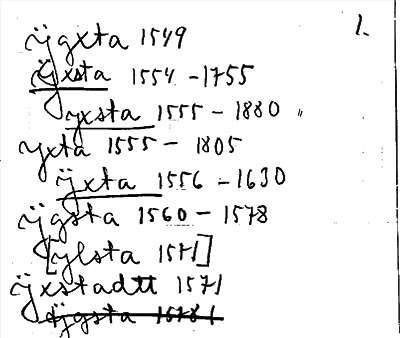 1.
ÿgxta 1549
ÿxsta 1554 - 1755
yxsta 1555 - 1880 "
yxta 1555 - 1805
ÿxta 1556 - 1630
ÿgsta 1560 - 1578
[ylsta 1571]
ÿxstadtt 1571
ÿgsta 1578